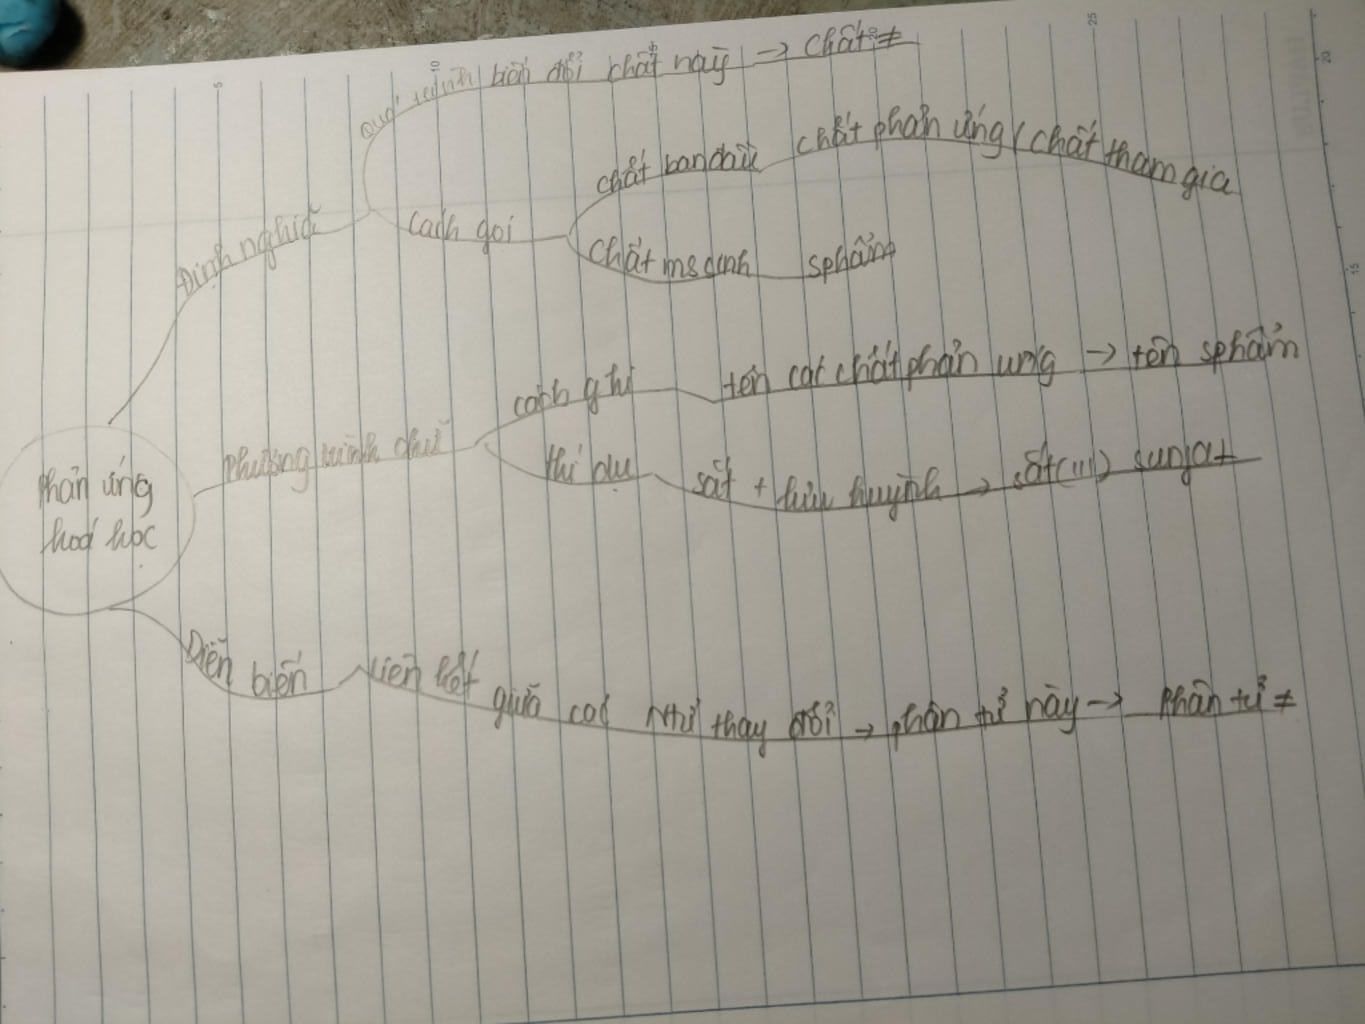 Quá trình biến đổi chất này → chất ≠
chất ban đầu chất phản ứng (chất tham gia
Định nghĩa cách gọi
chất ms sinh sphẩm
cách ghi tên các chất phản ứng → tên sphẩm
phương trình chữ
thí dụ sắt + lưu huỳnh → sắt (III) sunfat
Phản ứng
hoá học
Diễn biến liên kết giữa các Ntử thay đổi → phân tử này → phân tử ≠
5
10
25
20
15